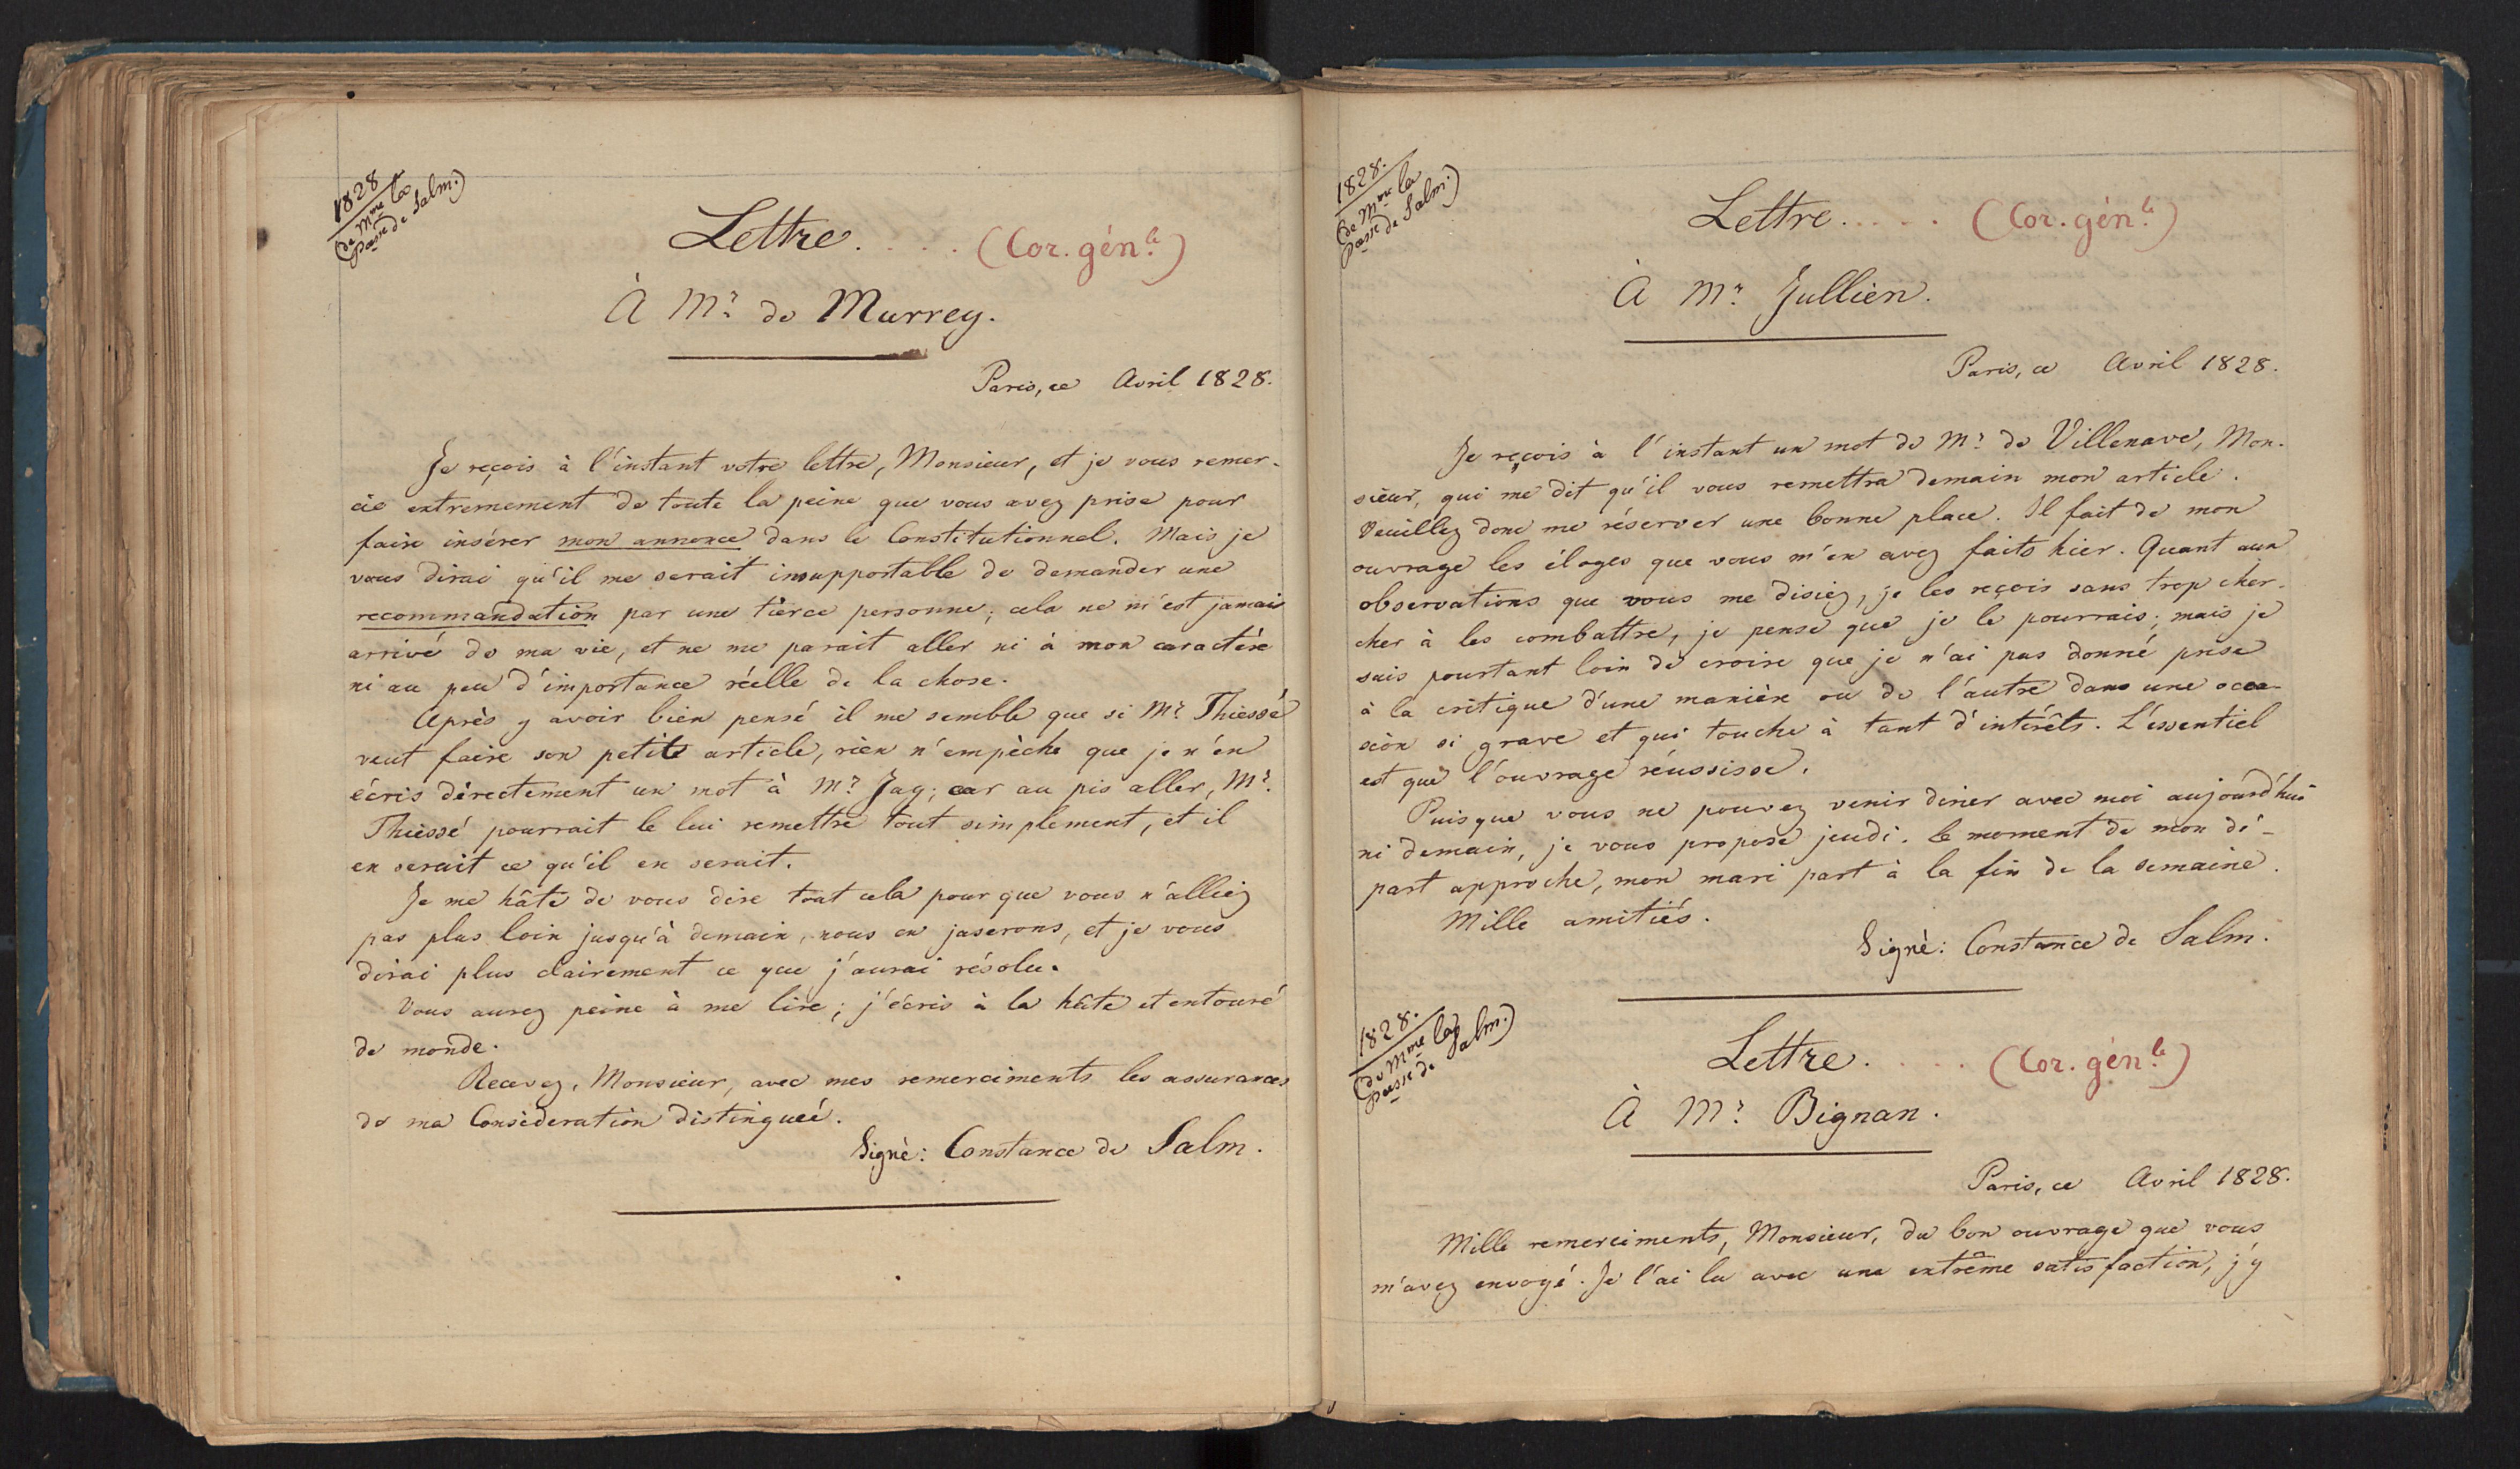 1828
(de Mme la
Pcesse de Salm.)
Lettre. . . . . (Cor. génle)
À Mr de Murrey.
Paris, ce Avril 1828.
Je reçois à l'instant votre lettre, Monsieur, et je vous remer-
cie extremement de toute la peine que vous avez prise pour
faire insérer mon annonce dans le Constitutionnel. Mais je
vous dirai qu'il me serait insupportable de demander une
recommandation par une tierce personne; cela ne m'est jamais
arrivé de ma vie, et ne me parait aller ni à mon caractère
ni au peu d'importance réelle de la chose.
Après y avoir bien pensé il me semble que si Mr Thiessé
veut faire son petit article, rien n'empèche que je n'en
écris directement un mot à Mr Jay; car au pis aller, Mr
Thiessé pourrait le lui remettre tout simplement, et il
en serait ce qu'il en serait.
Je me hâte de vous dire tout cela pour que vous n'alliez
pas plus loin jusqu'à demain, nous en jaserons, et je vous
dirai plus clairement ce que j'aurai résolu.
Vous aurez peine à me lire; j'écris à la hâte et entouré
de monde.
Recevez, Monsieur, avec mes remerciments les assurances
de ma Consideration distinguée.
Signé: Constance de Salm.
1828.
(de Mme la
Pcesse de Salm.)
Lettre. . . . . (Cor. génle)
À Mr Jullien.
Paris, ce Avril 1828.
Je reçois à l'instant un mot de Mr de Villenave, Mon-
sieur, qui me dit qu'il vous remettra demain mon article.
Veuillez donc me réserver une bonne place. Il fait de mon
ouvrage les éloges que vous m'en avez faits hier. Quant aux
observations que vous me disiez, je les reçois sans trop cher-
cher à les combattre, je pense que je le pourrais; mais je
suis pourtant loin de croire que je n'ai pas donné prise
à la critique d'une manière ou de l'autre dans une occa-
sion si grave et qui touche à tant d'intérêts. L'essentiel
est que l'ouvrage réussisse.
Puisque vous ne pouvez venir diner avec moi aujourd'hui
ni demain, je vous propose jeudi. le moment de mon dé-
part approche, mon mari part à la fin de la semaine.
Mille amitiés.
Signé: Constance de Salm.
1828.
(de Mme la
Pcesse de Salm.)
Lettre. . . . . (Cor. génle)
À Mr Bignan.
Paris, ce Avril 1828.
Mille remerciments, Monsieur, du bon ouvrage que vous
m'avez envoyé. Je l'ai lu avec une extrême satisfaction, j'y